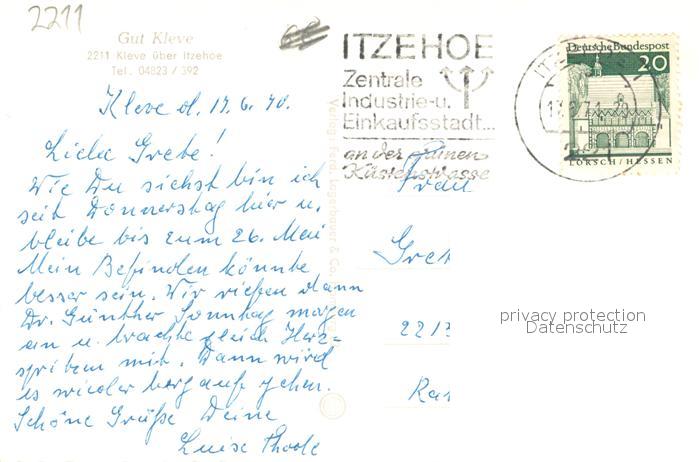 2211
Gut Kleve
2211 Kleve über Itzehoe
Tel. 04823 / 392
ITZEHOE
Zentrale
Industrie-u.
Einkaufsstadt...
an der Grünen
Küstenstrasse
Deutsche Bundespost
20
LORSCH / HESSEN
Kleve d. 17.6.70.
Liebe Grete!
Wie Du siehst bin ich
seit Donnerstag hier u.
bleibe bis zum 26. Mai
Mein Befinden könnte
besser sein. Wir riefen dann
Dr. Günther Sonntag morgen
an u. brachte gleich Herz=
spritzen mit. Dann wird
es wieder bergauf gehen.
Schöne Grüße Deine
Luise
Frau
Gret
221
Ra
Verlag Ferd. Lagerbauer & Co.
privacy protection
Datenschutz